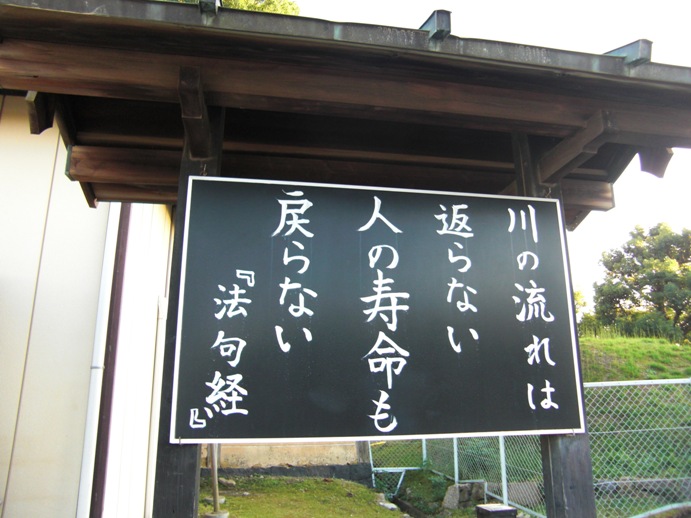 川の流れは
返らない
人の寿命も
戻らない
『法句経』